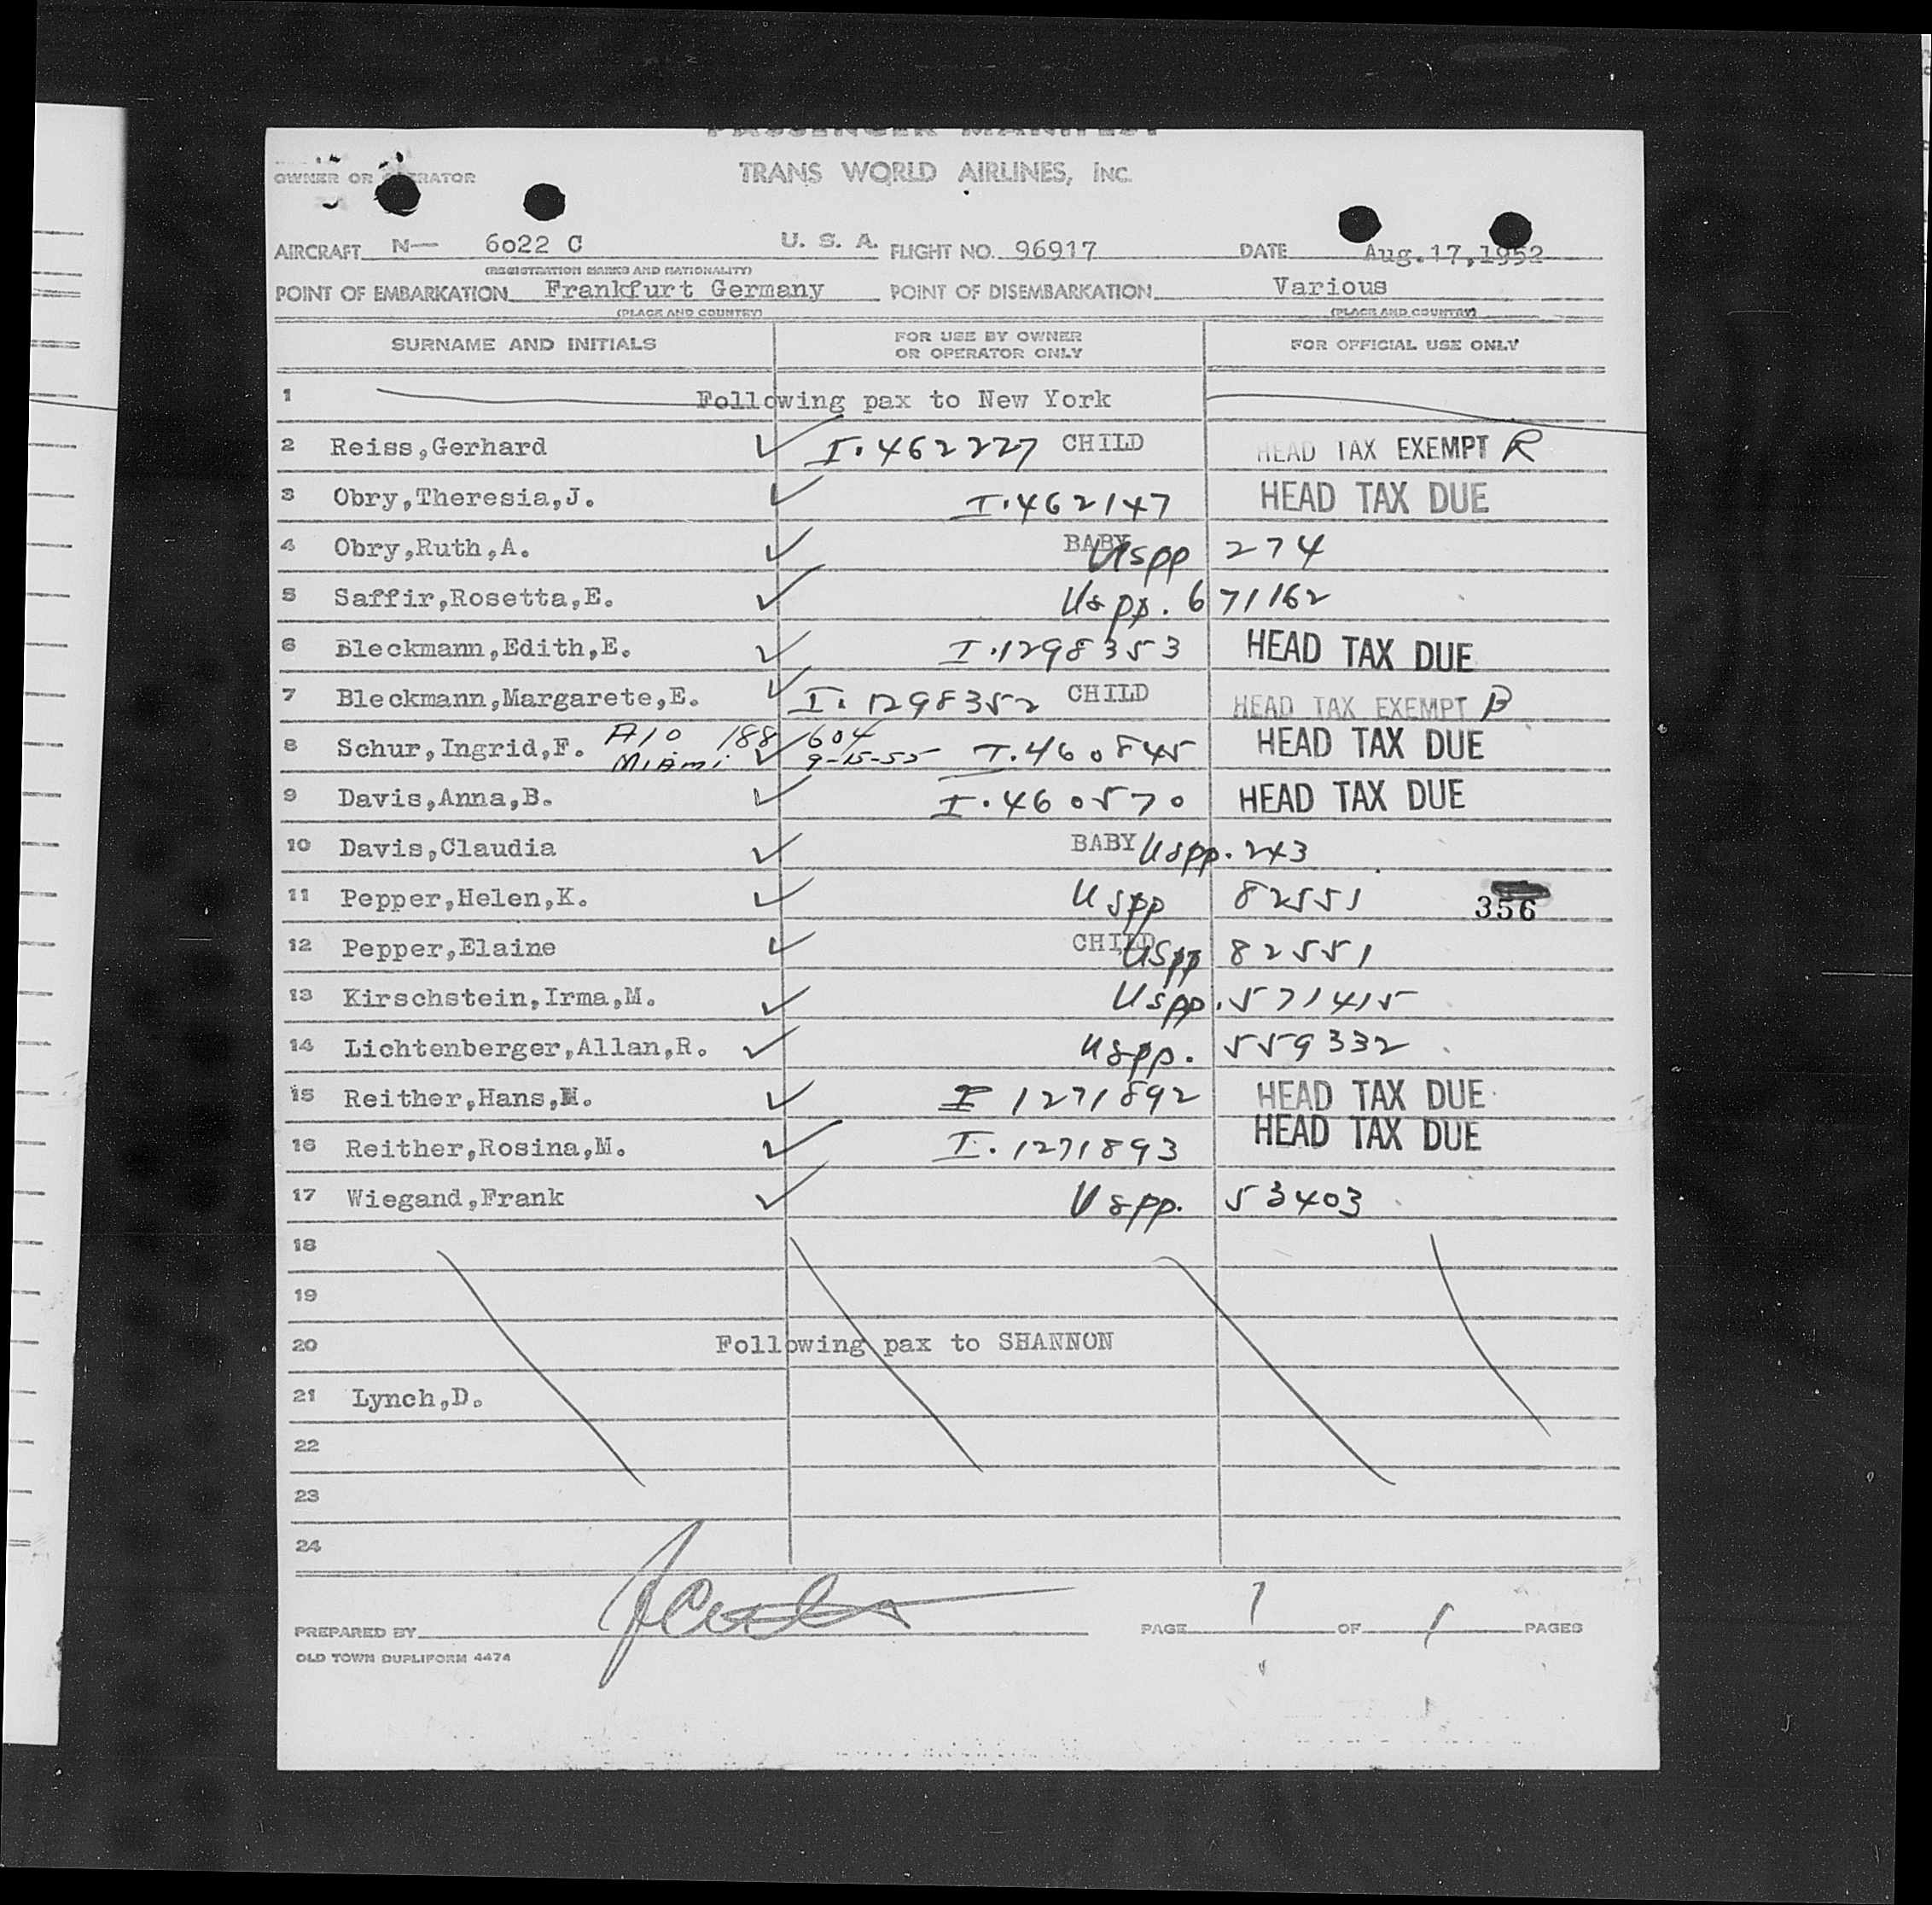 PASSENGER MANIFEST
OWNER OR OPERATOR TRANS WORLD AIRLINES, INC.
AIRCRAFT N— 6022 C U. S. A. FLIGHT NO. 96917 DATE Aug.17,1952
(REGISTRATION MARKS AND NATIONALITY)
POINT OF EMBARKATION Frankfurt Germany POINT OF DISEMBARKATION Various
(PLACE AND COUNTRY) (PLACE AND COUNTRY)
SURNAME AND INITIALS FOR USE BY OWNER OR OPERATOR ONLY FOR OFFICIAL USE ONLY
1 Following pax to New York
2 Reiss,Gerhard ✓ I.462227 CHILD HEAD TAX EXEMPT R
3 Obry,Theresia,J. ✓ I.462147 HEAD TAX DUE
4 Obry,Ruth,A. ✓ BABY USpp 274
5 Saffir,Rosetta,E. ✓ USpp. 671162
6 Bleckmann,Edith,E. ✓ I.1298353 HEAD TAX DUE
7 Bleckmann,Margarete,E. ✓ I.1298352 CHILD HEAD TAX EXEMPT B
8 Schur,Ingrid,F. A10 188 604 Miami ✓ 9-15-55 I.460845 HEAD TAX DUE
9 Davis,Anna,B. ✓ I.460570 HEAD TAX DUE
10 Davis,Claudia ✓ BABY USpp. 243
11 Pepper,Helen,K. ✓ USpp 82551 356
12 Pepper,Elaine ✓ CHILD USpp 82551
13 Kirschstein,Irma,M. ✓ USpp. 571415
14 Lichtenberger,Allan,R. ✓ USpp. 559332
15 Reither,Hans,M. ✓ I 1271892 HEAD TAX DUE
16 Reither,Rosina,M. ✓ I.1271893 HEAD TAX DUE
17 Wiegand,Frank ✓ USpp. 53403
18
19
20 Following pax to SHANNON
21 Lynch,D.
22
23
24
PREPARED BY PAGE 1 OF 1 PAGES
OLD TOWN DUPLIFORM 4474